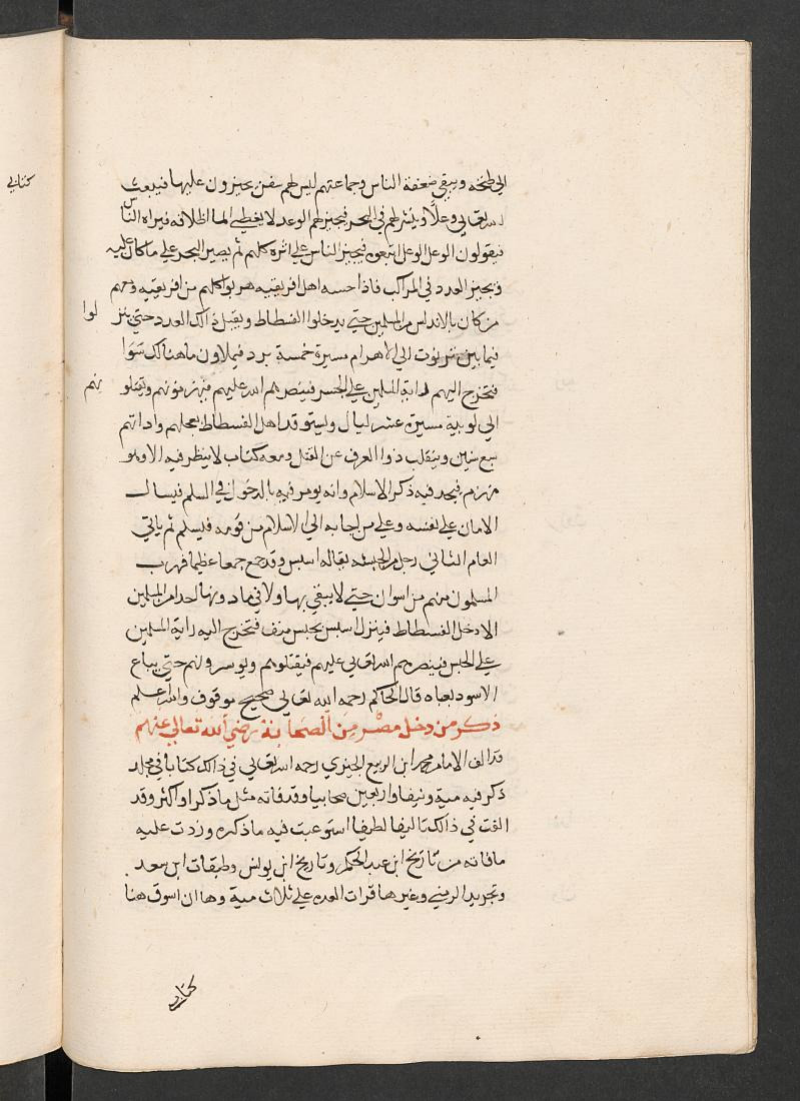 الي طنجة ويبقي ضعفة الناس وجماعتهم ليس لهم سفن يجيزون عليها فيبعث
الله تعالي وعلًا وينشر لهم في البحر فيجيز لهم الوعل لا يغطي الما اظلافه فيراه الناس
فيقولون الوعل الوعل اتبعوه فيجيز الناس علي اثره كلهم ثم يصير البحر علي ما كان عليه
ويجيز العدد في المراكب فاذا حسه اهل افريقيه هربوا كلهم من افريقيه ومعهم
من كان بالاندلس من المسلمين حتي يدخلوا الفسطاط ويقبل ذالك العدد حتي ينز
لوا
فيما بين تربوت الي الاهرام مسيرة خمسة برد فيملاون ما هنالك شوا
فتخرج اليهم راية المسلمين علي الجسر فينصرهم الله عليهم فيهزمونهم ويقتلو
نهم
الي لوبية مسيرة عشر ليال ويستوقد اهل الفسطاط بعجلهم واداتهم
سبع سنين وينقلب ذوا العرف عن القتل ومعه كتاب لا ينظر فيه الا وهو
منهزم فيجد فيه ذكر الاسلام وانه يومر فيه بالدخول في السلم فيسال
الامان علي نفسه وعلي من اجابه الي الاسلام من قومه فيسلم ثم ياتي
العام الثاني رجل من الحبشه يقاله اسبس وقد جمع جمعا عظيما فهرب
المسلمون منهم من اسوان حتي لا يبقي بها ولا فيما دونها احد من المسلمين
الا دخل الفسطاط فينزل اسبس بجيش منف فتخرج اليه راية المسلمين
علي الجسر فينصرهم الله تعالي عليهم فيقتلوهم ويوسرونهم حتي يباع
الاسود بعباه قال الحاكم رحمه الله تعالي صحيح موقوف والله اعلم
ذكر من دخل مصر من الصحابة رضي الله تعالي عنهم
قد الف الامام محمد ابن الربيع الجيزي رحمه الله تعالي في ذالك كتابا في مجلد
ذكر فيه مية ونيفا واربعين صحابيا وقد فاته مثل ما ذكر او اكثر وقد
الفت في ذالك تاليفا لطيفا استوعبت فيه ما ذكره وزدت عليه
ما فاته من تاريخ ابن عبد الحكم وتاريخ ابن يونس وطبقات ابن سعد
وتجريد الذهبي وغيرها فزادت العدة علي ثلاث مية وها ان اسوق هنا
كتابي